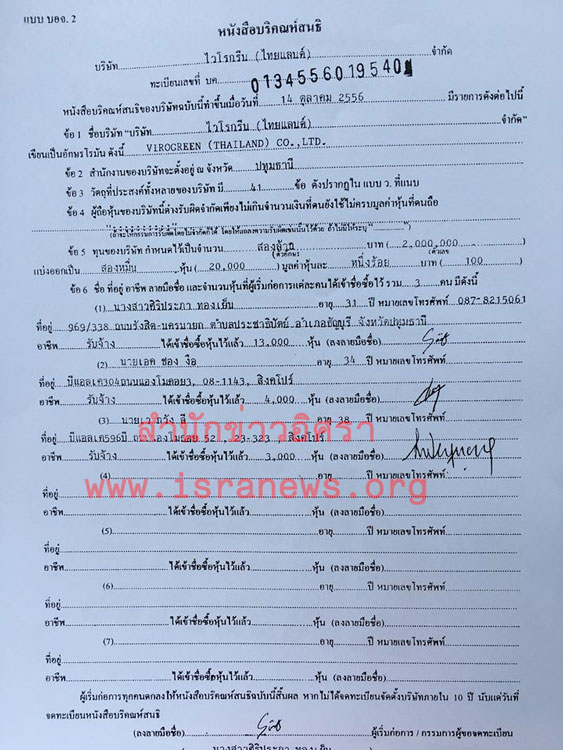 แบบ บอจ. 2
หนังสือบริคณห์สนธิ
บริษัท ไวโรกรีน (ไทยแลนด์) จำกัด
ทะเบียนเลขที่ บค. 0134556019540
หนังสือบริคณห์สนธิของบริษัทฉบับนี้ทำขึ้นเมื่อวันที่ 14 ตุลาคม 2556 มีรายการดังต่อไปนี้
ข้อ 1 ชื่อบริษัท "บริษัท ไวโรกรีน (ไทยแลนด์) จำกัด"
เขียนเป็นอักษรโรมัน ดังนี้ VIROGREEN (THAILAND) CO.,LTD.
ข้อ 2 สำนักงานของบริษัทจะตั้งอยู่ ณ จังหวัด ปทุมธานี
ข้อ 3 วัตถุที่ประสงค์ทั้งหลายของบริษัท มี 41 ข้อ ดังปรากฏใน แบบ ว. ที่แนบ
ข้อ 4 ผู้ถือหุ้นของบริษัทนี้ต่างรับผิดจำกัดเพียงไม่เกินจำนวนเงินที่ตนยังใช้ไม่ครบมูลค่าหุ้นที่ตนถือ
(ถ้าจะให้กรรมการรับผิดโดยไม่จำกัดก็ได้ โดยให้แถลงความรับผิดเช่นนั้นไว้ด้วย ถ้าไม่มีให้ระบุ "")
ข้อ 5 ทุนของบริษัท กำหนดไว้เป็นจำนวน สองล้าน บาท ( 2,000,000 )
(ตัวอักษร) (ตัวเลข)
แบ่งออกเป็น สองหมื่น หุ้น ( 20,000 ) มูลค่าหุ้นละ หนึ่งร้อย บาท ( 100 )
ข้อ 6 ชื่อ ที่อยู่ อาชีพ ลายมือชื่อ และจำนวนหุ้นที่ผู้เริ่มก่อการแต่ละคน ได้เข้าชื่อซื้อไว้ รวม 3 คน มีดังนี้
(1) นางสาวศิริประภา ทองเย็น อายุ 31 ปี หมายเลขโทรศัพท์ 087-8215061
ที่อยู่ 969/338 ถนนรังสิต-นครนายก ตำบลประชาธิปัตย์ อำเภอธัญบุรี จังหวัดปทุมธานี
อาชีพ รับจ้าง ได้เข้าชื่อซื้อหุ้นไว้แล้ว 13,000 หุ้น (ลงลายมือชื่อ)
(2) นายเอค ซอง งือ อายุ 34 ปี หมายเลขโทรศัพท์
ที่อยู่ บีแอลเค304ถนนแองโมคอย3, 08-1143, สิงคโปร์
อาชีพ รับจ้าง ได้เข้าชื่อซื้อหุ้นไว้แล้ว 4,000 หุ้น (ลงลายมือชื่อ)
(3) ลี อายุ 38 ปี หมายเลขโทรศัพท์
ที่อยู่ บีแอลเค596บี 52 ,23-323 , สิงคโปร์
อาชีพ รับจ้าง ได้เข้าชื่อซื้อหุ้นไว้แล้ว 3,000 หุ้น (ลงลายมือชื่อ)
สำนักข่าวอิศรา
www.isranews.org
(4) อายุ ปี หมายเลขโทรศัพท์
ที่อยู่
อาชีพ ได้เข้าชื่อซื้อหุ้นไว้แล้ว หุ้น (ลงลายมือชื่อ)
(5) อายุ ปี หมายเลขโทรศัพท์
ที่อยู่
อาชีพ ได้เข้าชื่อซื้อหุ้นไว้แล้ว หุ้น (ลงลายมือชื่อ)
(6) อายุ ปี หมายเลขโทรศัพท์
ที่อยู่
อาชีพ ได้เข้าชื่อซื้อหุ้นไว้แล้ว หุ้น (ลงลายมือชื่อ)
(7) อายุ ปี หมายเลขโทรศัพท์
ที่อยู่
อาชีพ ได้เข้าชื่อซื้อหุ้นไว้แล้ว หุ้น (ลงลายมือชื่อ)
ผู้เริ่มก่อการทุกคนตกลงให้หนังสือบริคณห์สนธิฉบับนี้สิ้นผล หากไม่ได้จดทะเบียนจัดตั้งบริษัทภายใน 10 ปี นับแต่วันที่
จดทะเบียนหนังสือบริคณห์สนธิ
(ลงลายมือชื่อ) ผู้เริ่มก่อการ / กรรมการผู้ขอจดทะเบียน
นางสาวศิริประภา ทองเย็น